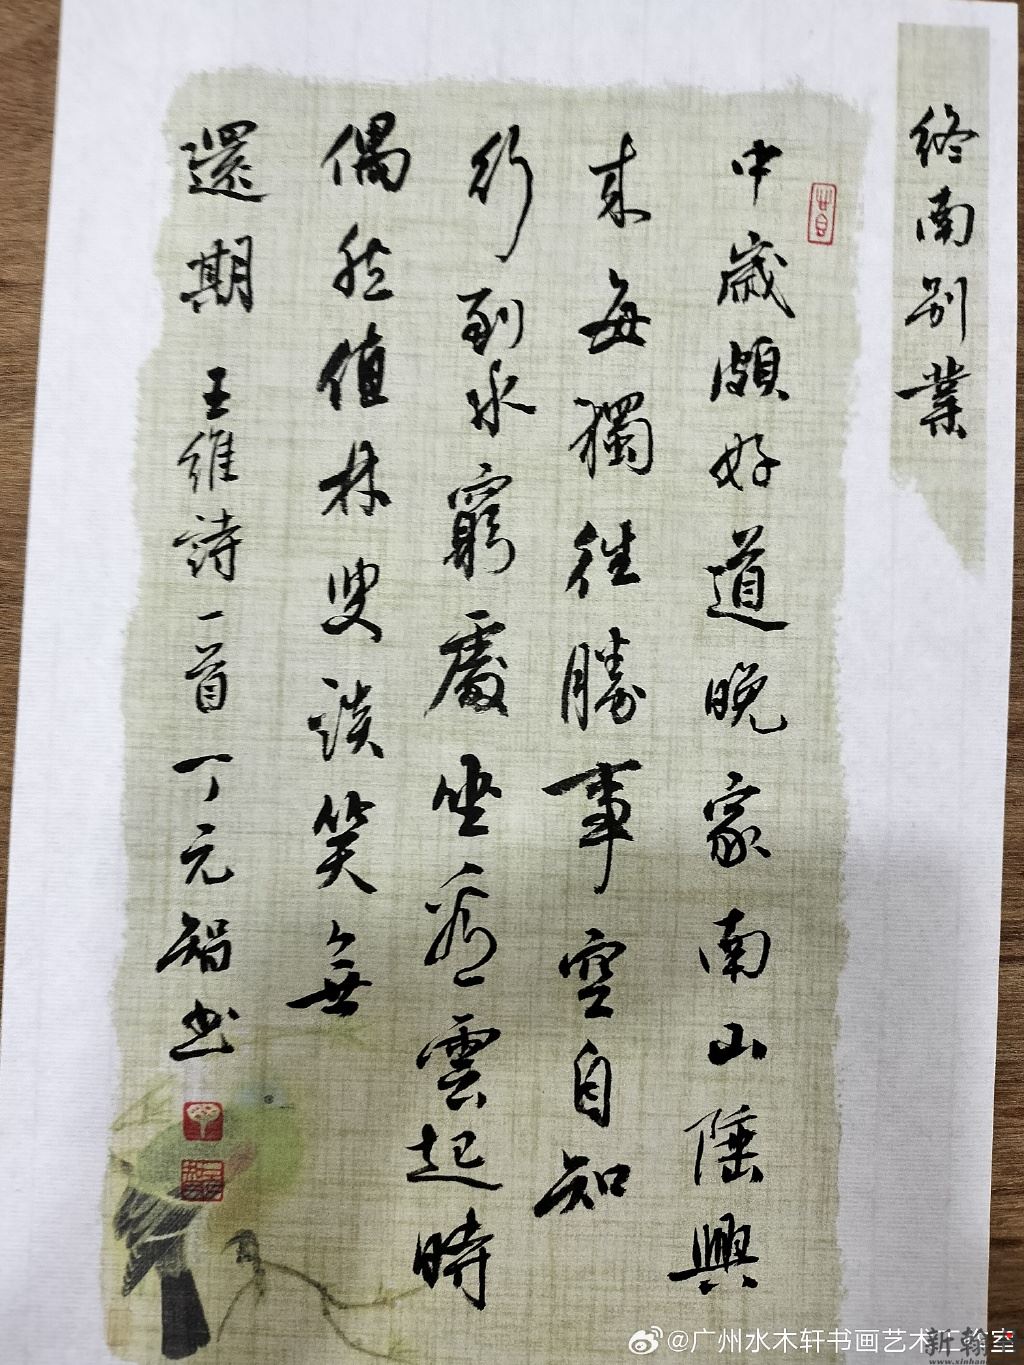 終南别業
中歲頗好道晚家南山陲興
來每獨往勝事空自知
行到水窮處坐看雲起時
偶然值林叟談笑無
還期 王維詩一首丁元智书
@广州水木轩书画艺术工作室
新翰
www.xinhan